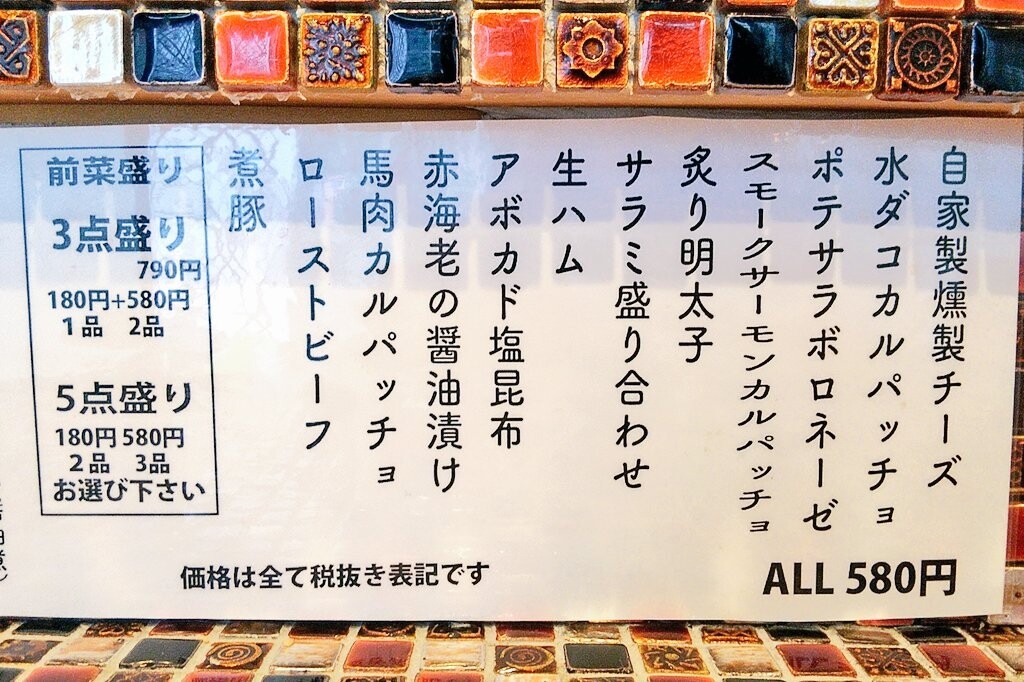 自家製燻製チーズ
水ダコカルパッチョ
ポテサラボロネーゼ
スモークサーモンカルパッチョ
炙り明太子
サラミ盛り合わせ
生ハム
アボカド塩昆布
赤海老の醤油漬け
馬肉カルパッチョ
ローストビーフ
煮豚
ALL 580円
価格は全て税抜き表記です
前菜盛り
3点盛り
790円
180円+580円
1品 2品
5点盛り
180円 580円
2品 3品
お選び下さい